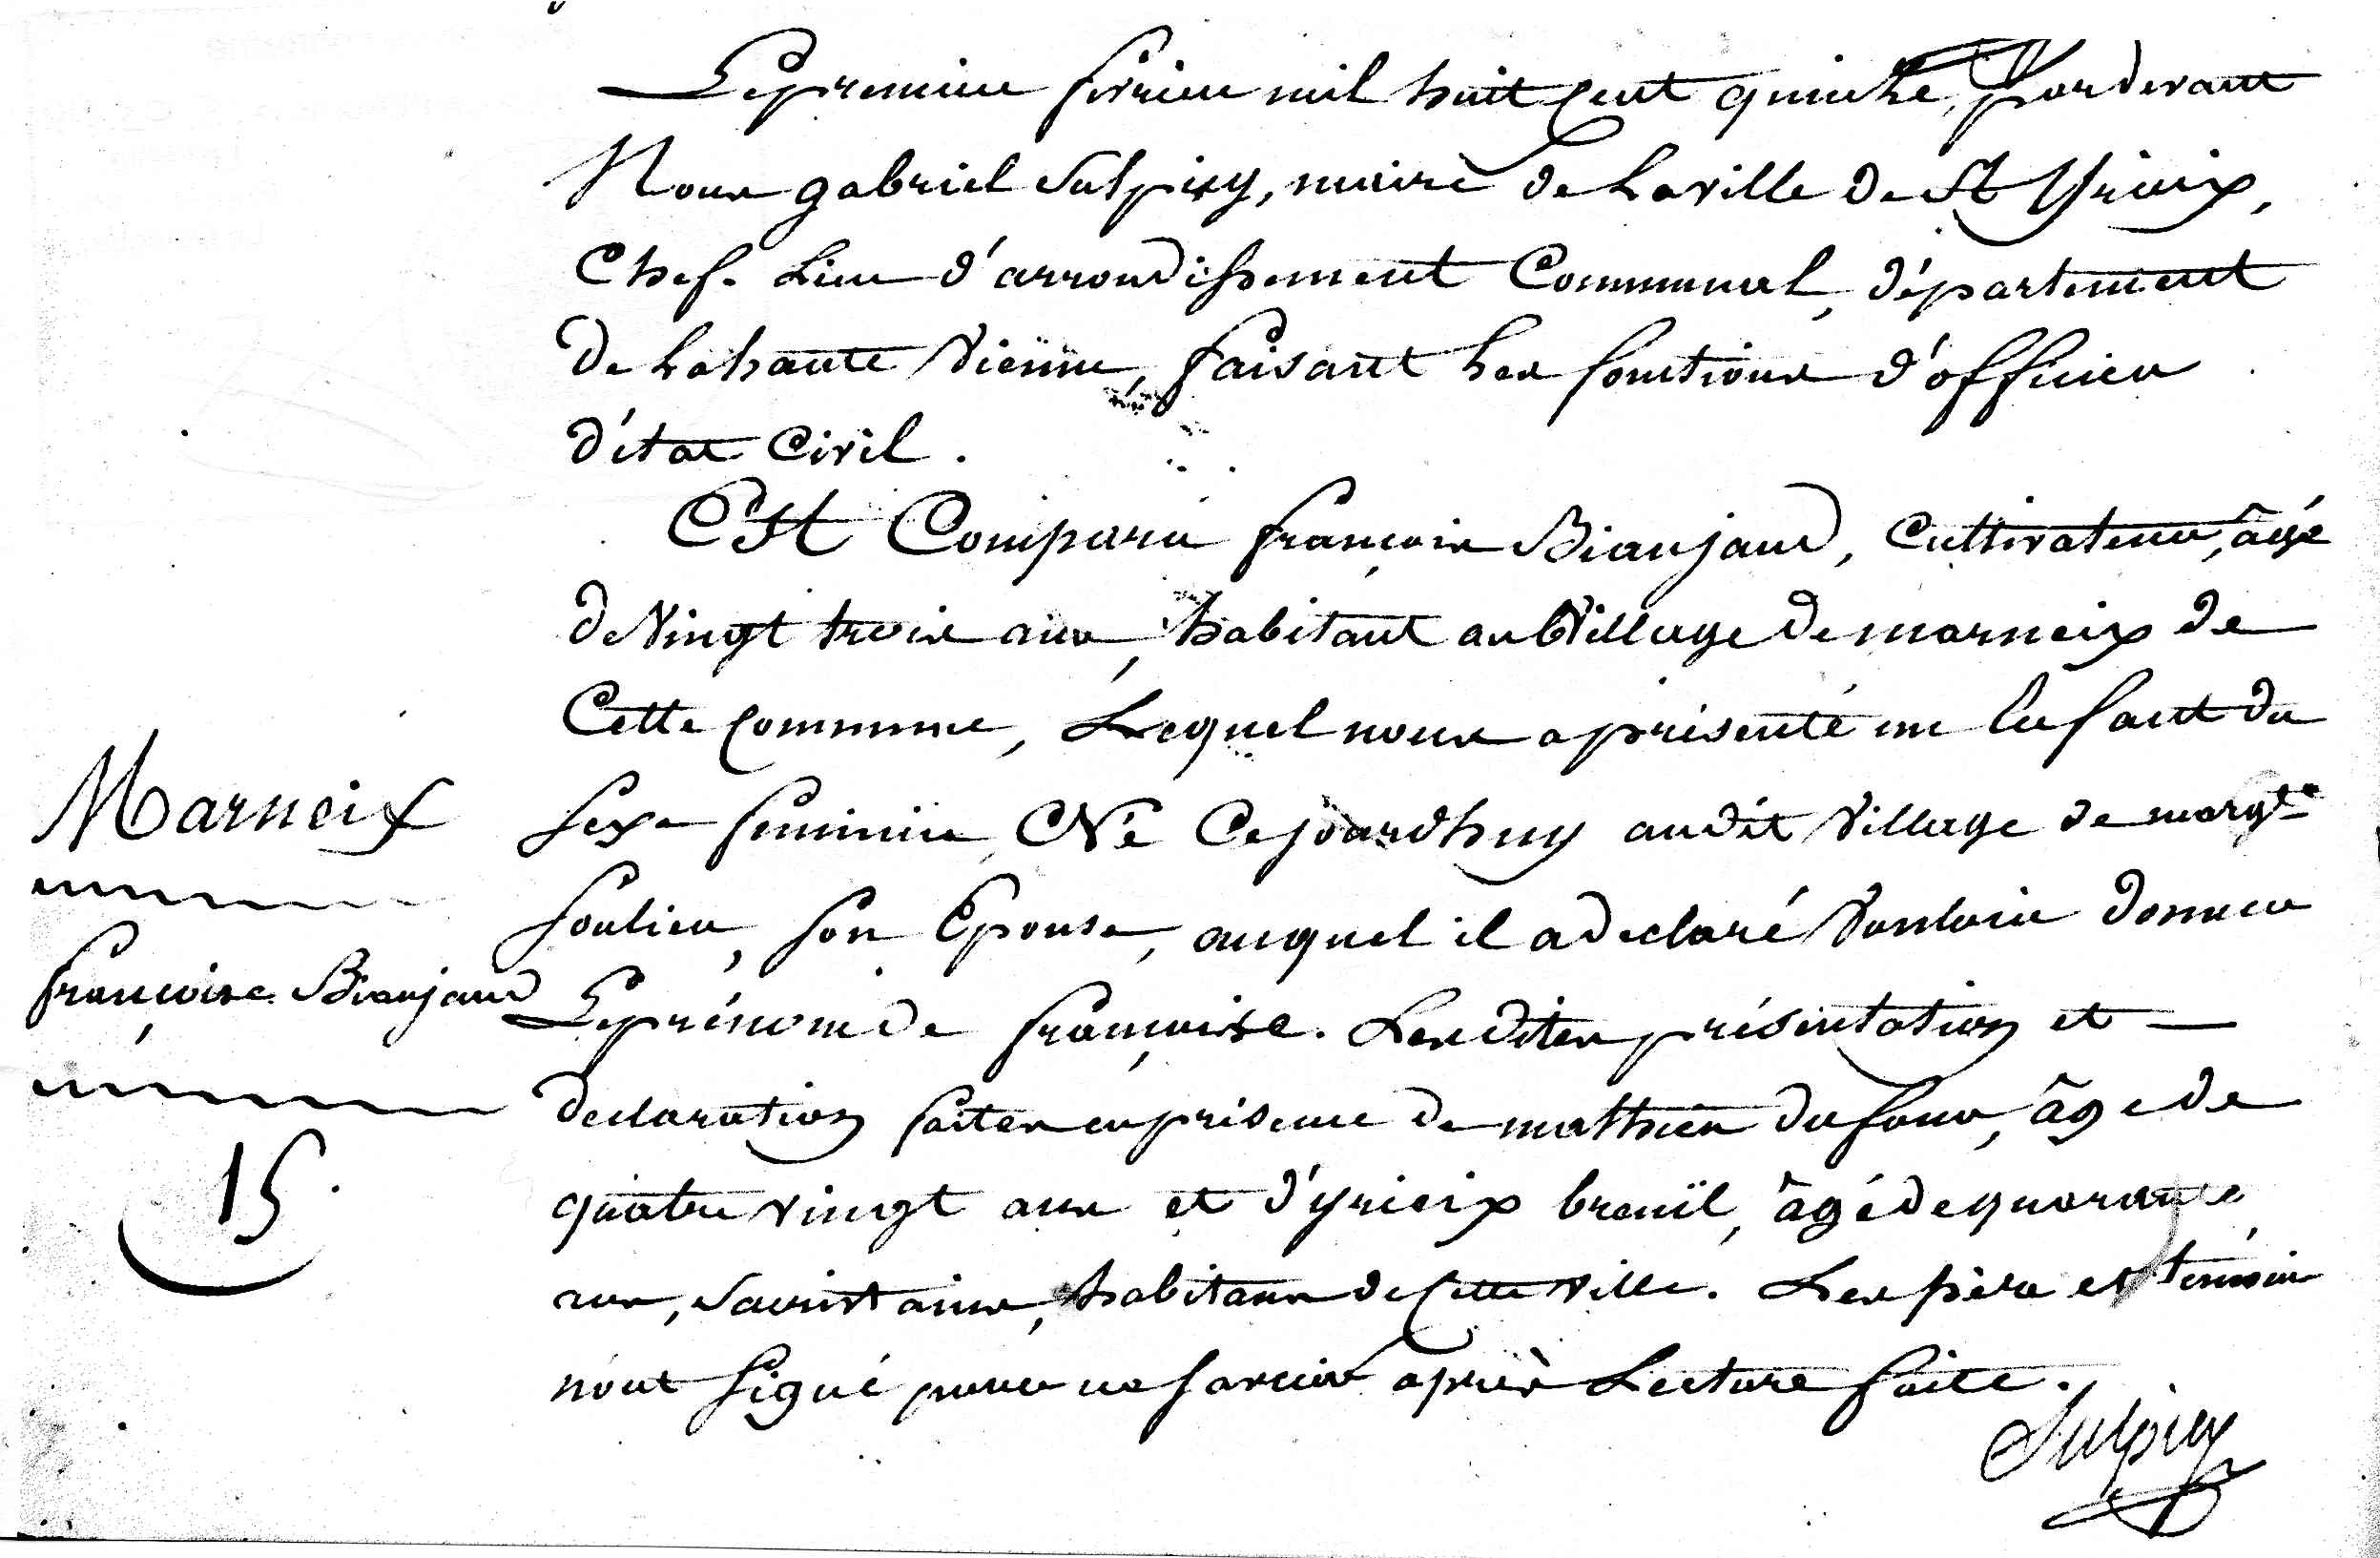 Le premier fevrier mil huit cent quinze, pardevant
Nous gabriel Sulpicy, maire de La ville de St Yrieix,
Chef-Lieu d'arrondissement Communal, département
de La haute Vienne, faisant les fonctions d'officier
d'état Civil.
Est Comparu françois Bianjaud, Cultivateur, âgé
de Vingt trois ans, habitant au Village de marneix de
Cette Commune, Lequel nous a présenté un Enfant du
Sexe feminin, Né Cejourdhuy audit Village de margte
Soulier, Son Epouse, auquel il a declaré Vouloir donner
Le prénom de françoise. Les dites présentation et
declaration faites en présence de mathieu dufour, âgé de
quatre vingt ans et d'yrieix breuil, âgé de quarante
ans, habitans de Cette ville. Les père et temoins
n'ont Signé pour ne Savoir après Lecture faite.
Sulpicy
Marneix
françoise Bianjaud
15